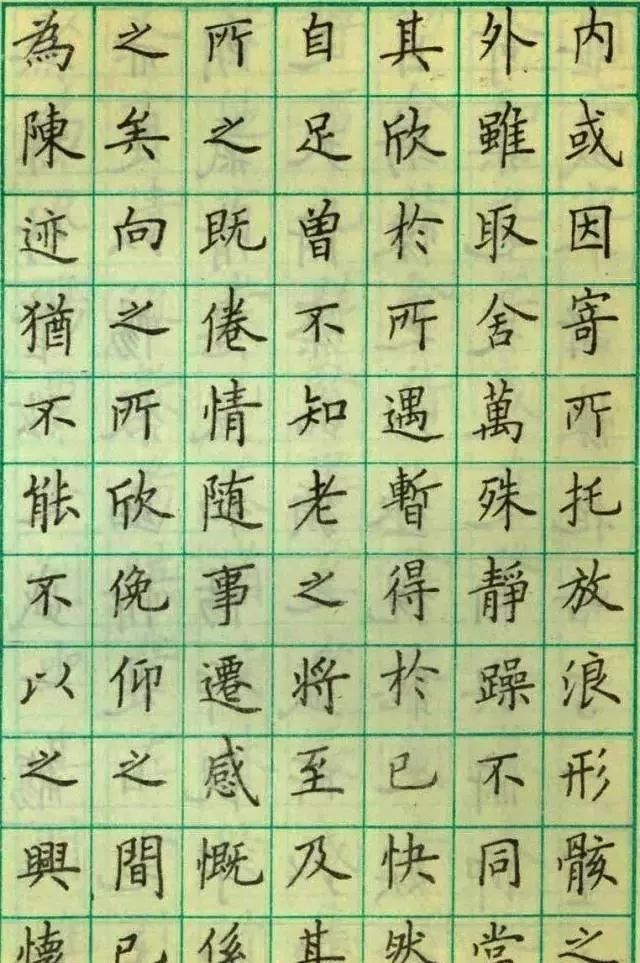 内或因寄所托放浪形骸之
外雖取舍萬殊靜躁不同當
其欣於所遇暫得於己快然
自足曾不知老之將至及其
所之既倦情随事遷感慨係
之矣向之所欣俛仰之間已
為陳迹猶不能不以之興懷